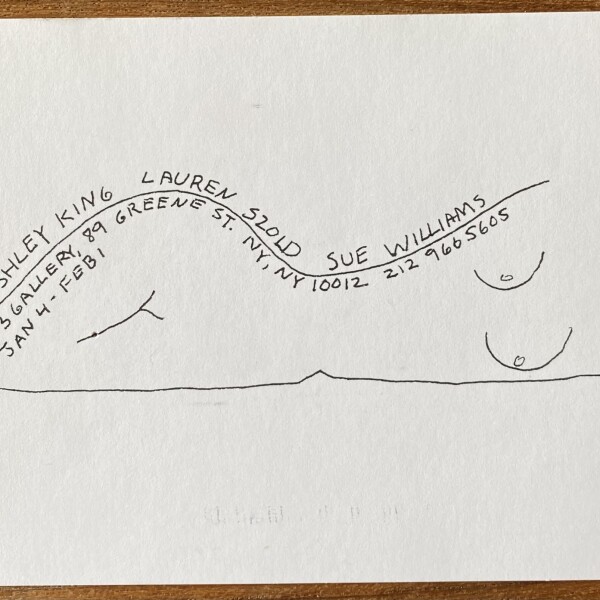 SHLEY KING LAUREN SZOLD SUE WILLIAMS
3 GALLERY, 89 GREENE ST. NY, NY 10012 212 9665605
JAN 4 - FEB 1